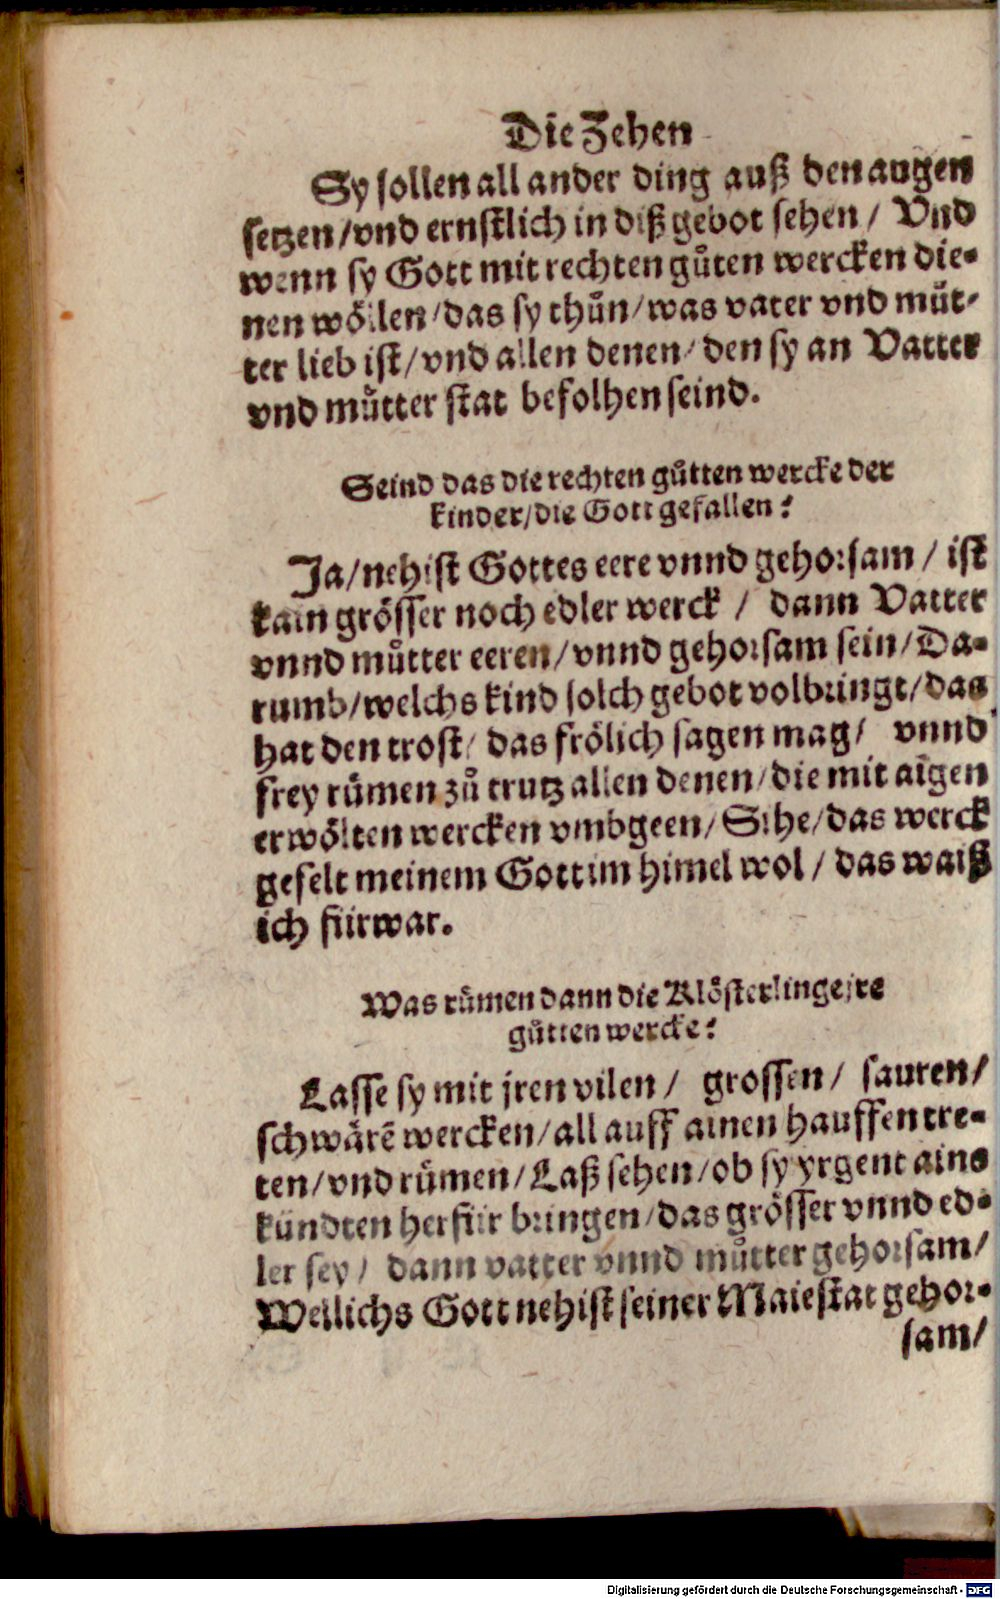 Die Zehen
Sy sollen all ander ding auß den augen
setzen/vnd ernstlich in diß gebot sehen/ Vnd
wenn sy Gott mit rechten gůten wercken die⸗
nen wöllen/das sy thůn/was vater vnd můt⸗
ter lieb ist/vnd allen denen/den sy an Vatter
vnd můtter stat befolhen seind.
Seind das die rechten gůtten wercke der
kinder/die Gott gefallen?
Ja/nehist Gottes eere vnnd gehorsam/ ist
kain grösser noch edler werck/ dann Vatter
vnnd můtter eeren/vnnd gehorsam sein/Da⸗
rumb/welchs kind solch gebot volbringt/das
hat den trost/ das frölich sagen mag/ vnnd
frey rümen zů trutz allen denen/die mit aigen
erwölten wercken vmbgeen/Sihe/das werck
gefelt meinem Gott im himel wol/ das waiß
ich fürwar.
Was rümen dann die Klösterlinge jre
gůtten wercke?
Lasse sy mit jren vilen/ grossen/ sauren/
schwärē wercken/all auff ainen hauffen tre⸗
ten/vnd rümen/Laß sehen/ob sy yrgent ains
kündten herfür bringen/das grösser vnnd ed⸗
ler sey/ dann vatter vnnd můtter gehorsam/
Wellichs Gott nehist seiner Maiestat gehor⸗
sam/
Digitalisierung gefördert durch die Deutsche Forschungsgemeinschaft - DFG